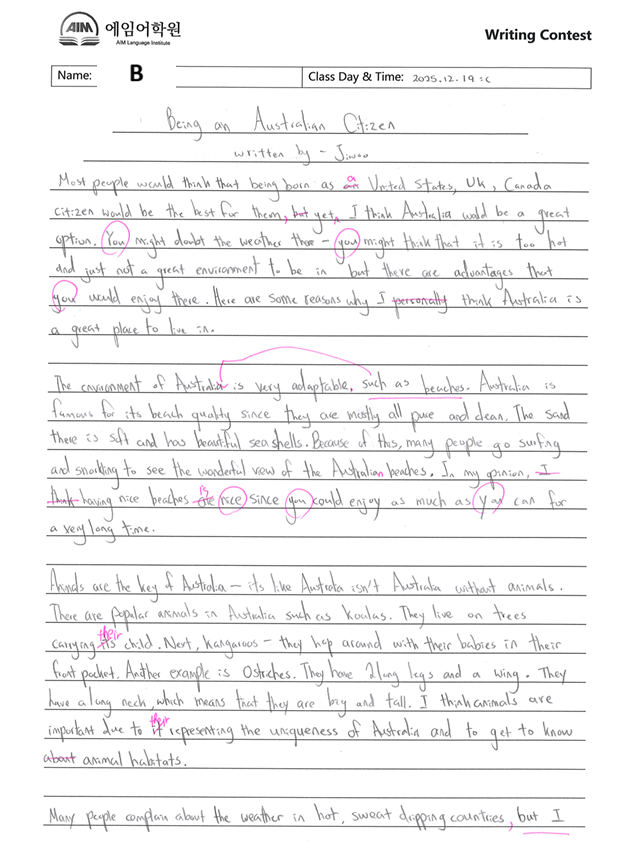 AIM
에임어학원
AIM Language Institute
Writing Contest
Name: B
Class Day & Time: 2025.12.19 :c
Being an Australian Citizen
written by - Jiwoo
Most people would think that being born as an a United States, UK, Canada
citizen would be the best for them, but yet, I think Australia would be a great
option. You might doubt the weather there – you might think that it is too hot
and just not a great environment to be in but there are advantages that
you would enjoy there. Here are some reasons why I personally think Australia is
a great place to live in.
The environment of Australia is very adaptable, such as beaches. Australia is
famous for its beach quality since they are mostly all pure and clean. The sand
there is soft and has beautiful seashells. Because of this, many people go surfing
and snorkling to see the wonderful view of the Australian beaches. In my opinion, I
think having nice beaches is nice since you could enjoy as much as you can for
a very long time.
Animals are the key of Australia – its like Australia isn't Australia without animals.
There are popular animals in Australia such as Koalas. They live on trees
carrying its their child. Next, kangaroos – they hop around with their babies in their
front pocket. Another example is Ostriches. They have 2 long legs and a wing. They
have a long neck, which means that they are big and tall. I think animals are
important due to it their representing the uniqueness of Australia and to get to know
about animal habitats.
Many people complain about the weather in hot, sweat dripping countries, but I